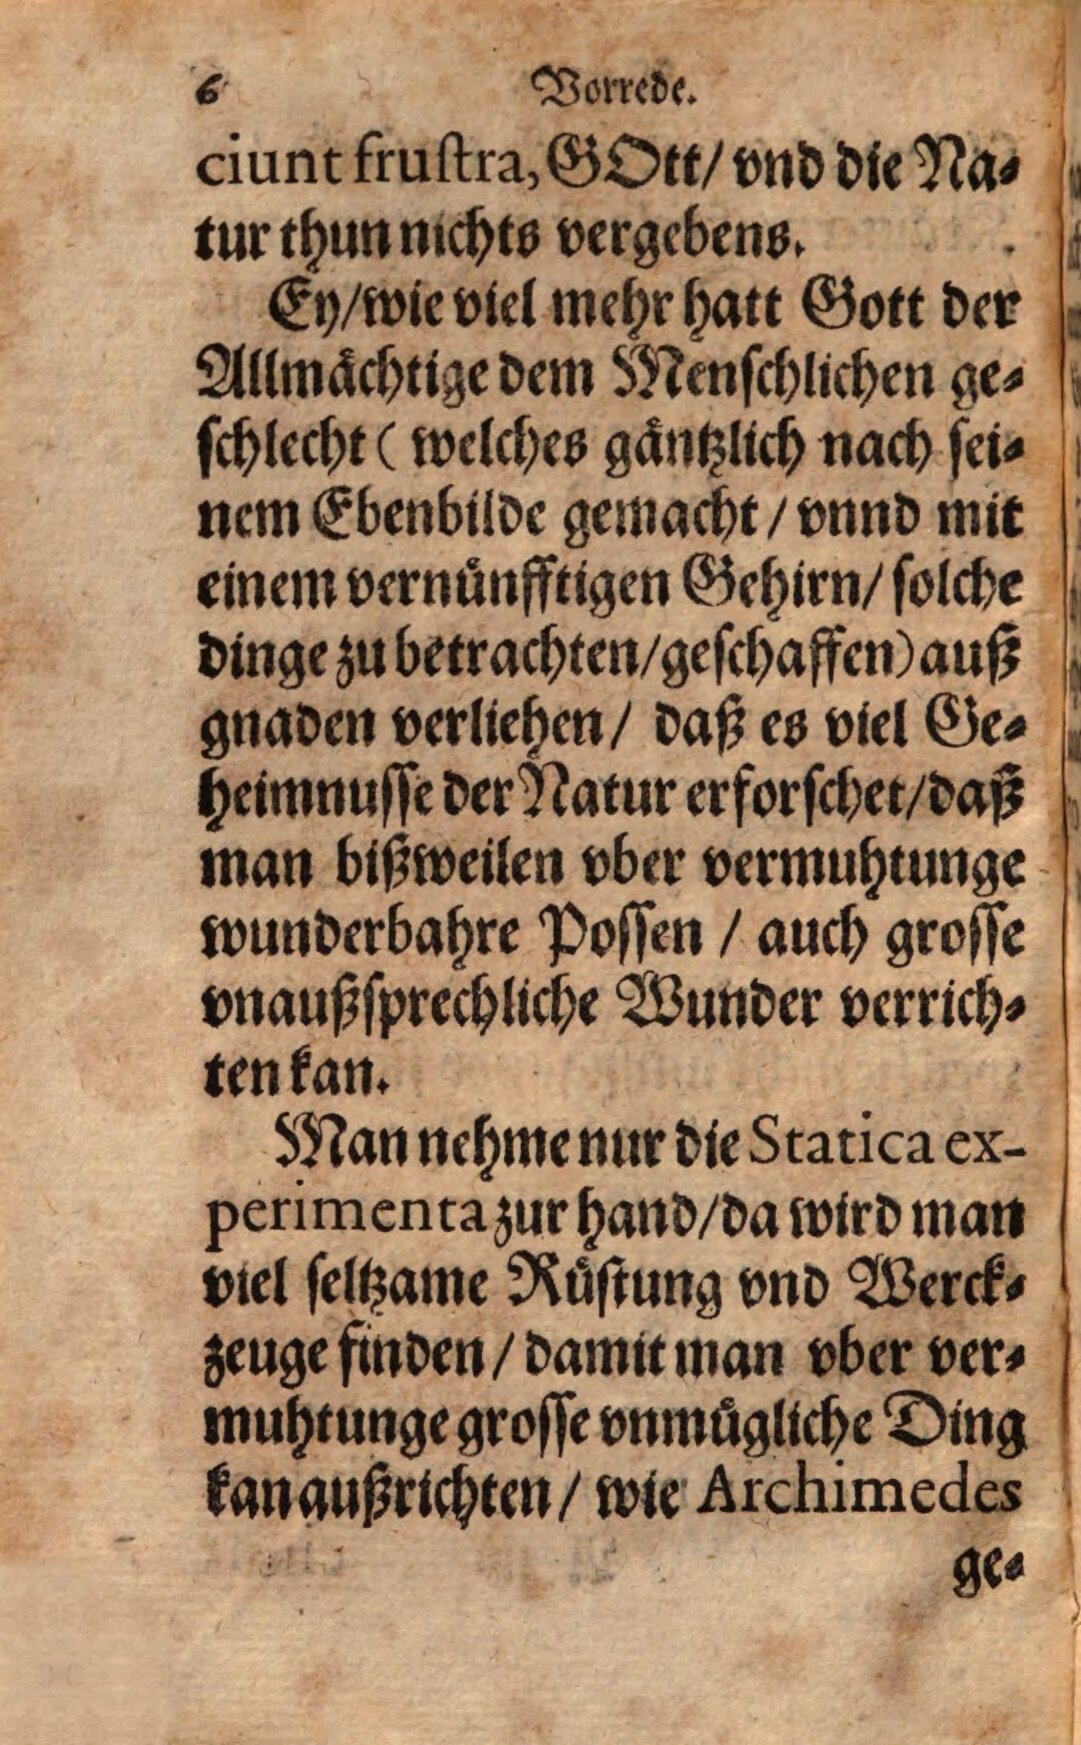 6 Vorrede.
ciunt frustra, GOtt/ vnd die Na-
tur thun nichts vergebens.
Ey/wie viel mehr hatt Gott der
Allmächtige dem Menschlichen ge-
schlecht ( welches gäntzlich nach sei-
nem Ebenbilde gemacht / vnnd mit
einem vernünfftigen Gehirn/ solche
dinge zu betrachten/geschaffen) auß
gnaden verliehen/ daß es viel Ge-
heimnusse der Natur erforschet/daß
man bißweilen vber vermuhtunge
wunderbahre Possen / auch grosse
vnaußsprechliche Wunder verrich-
ten kan.
Man nehme nur die Statica ex-
perimenta zur hand/da wird man
viel seltzame Rüstung vnd Werck-
zeuge finden / damit man vber ver-
muhtunge grosse vnmügliche Ding
kan außrichten / wie Archimedes
ge-